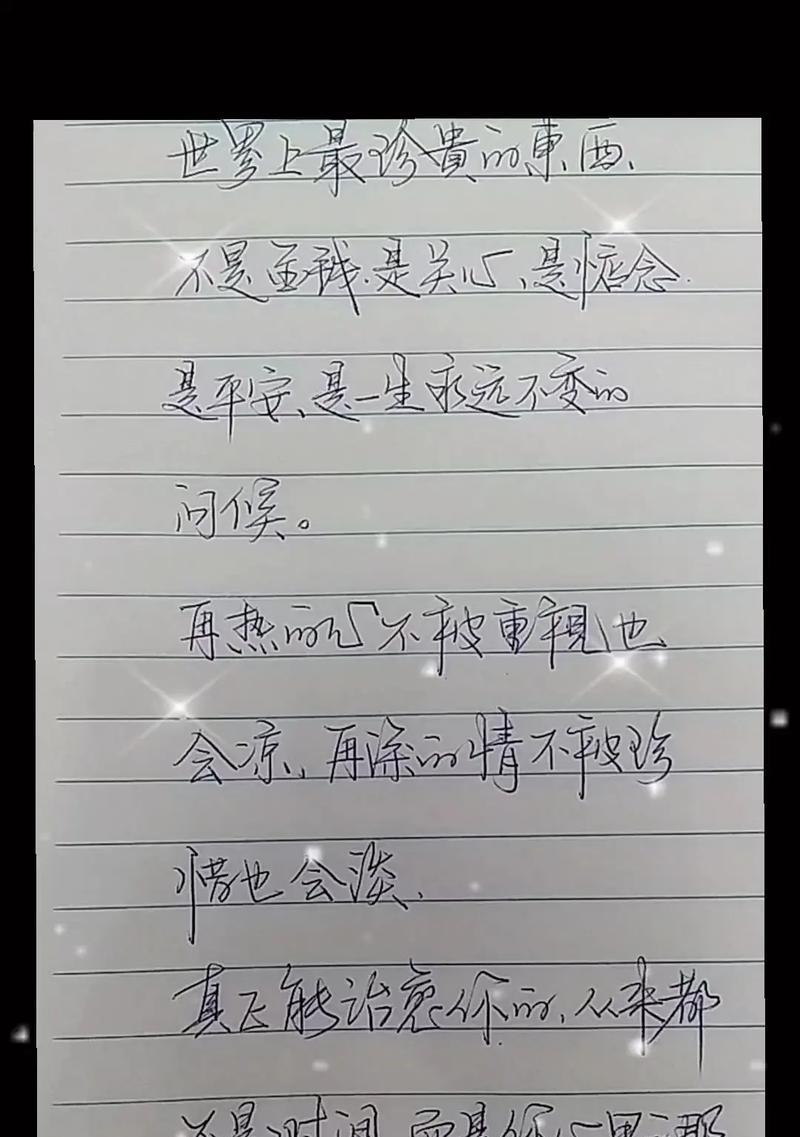 世界上最珍貴的東西、
不是金钱.是关心、是惦念.
是平安、是一生永远不变的
问候。
再热的心不被重視也
会凉、再深的情不被珍
惜也会淡、
真正能治愈你的、从来都
不是时间,而是你心里那